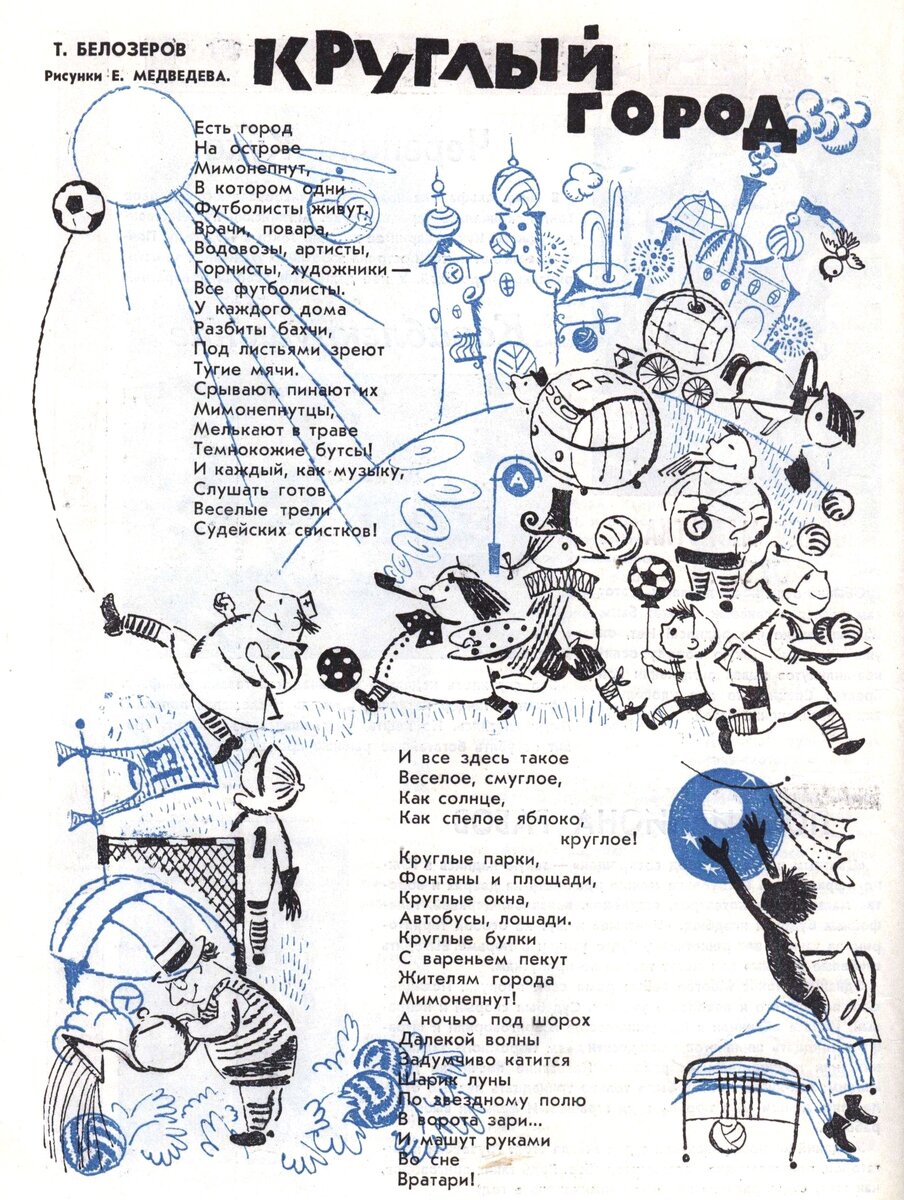 Т. БЕЛОЗЕРОВ
Рисунки Е. МЕДВЕДЕВА.
КРУГЛЫЙ
ГОРОД
Есть город
На острове
Мимонепнут,
В котором одни
Футболисты живут.
Врачи, повара,
Водовозы, артисты,
Горнисты, художники —
Все футболисты.
У каждого дома
Разбиты бахчи,
Под листьями зреют
Тугие мячи.
Срывают, пинают их
Мимонепнутцы,
Мелькают в траве
Темнокожие бутсы!
И каждый, как музыку,
Слушать готов
Веселые трели
Судейских свистков!
А
13
1
И все здесь такое
Веселое, смуглое,
Как солнце,
Как спелое яблоко,
круглое!
Круглые парки,
Фонтаны и площади,
Круглые окна,
Автобусы, лошади.
Круглые булки
С вареньем пекут
Жителям города
Мимонепнут!
А ночью под шорох
Далекой волны
Задумчиво катится
Шарик луны
По звездному полю
В ворота зари...
И машут руками
Во сне
Вратари!